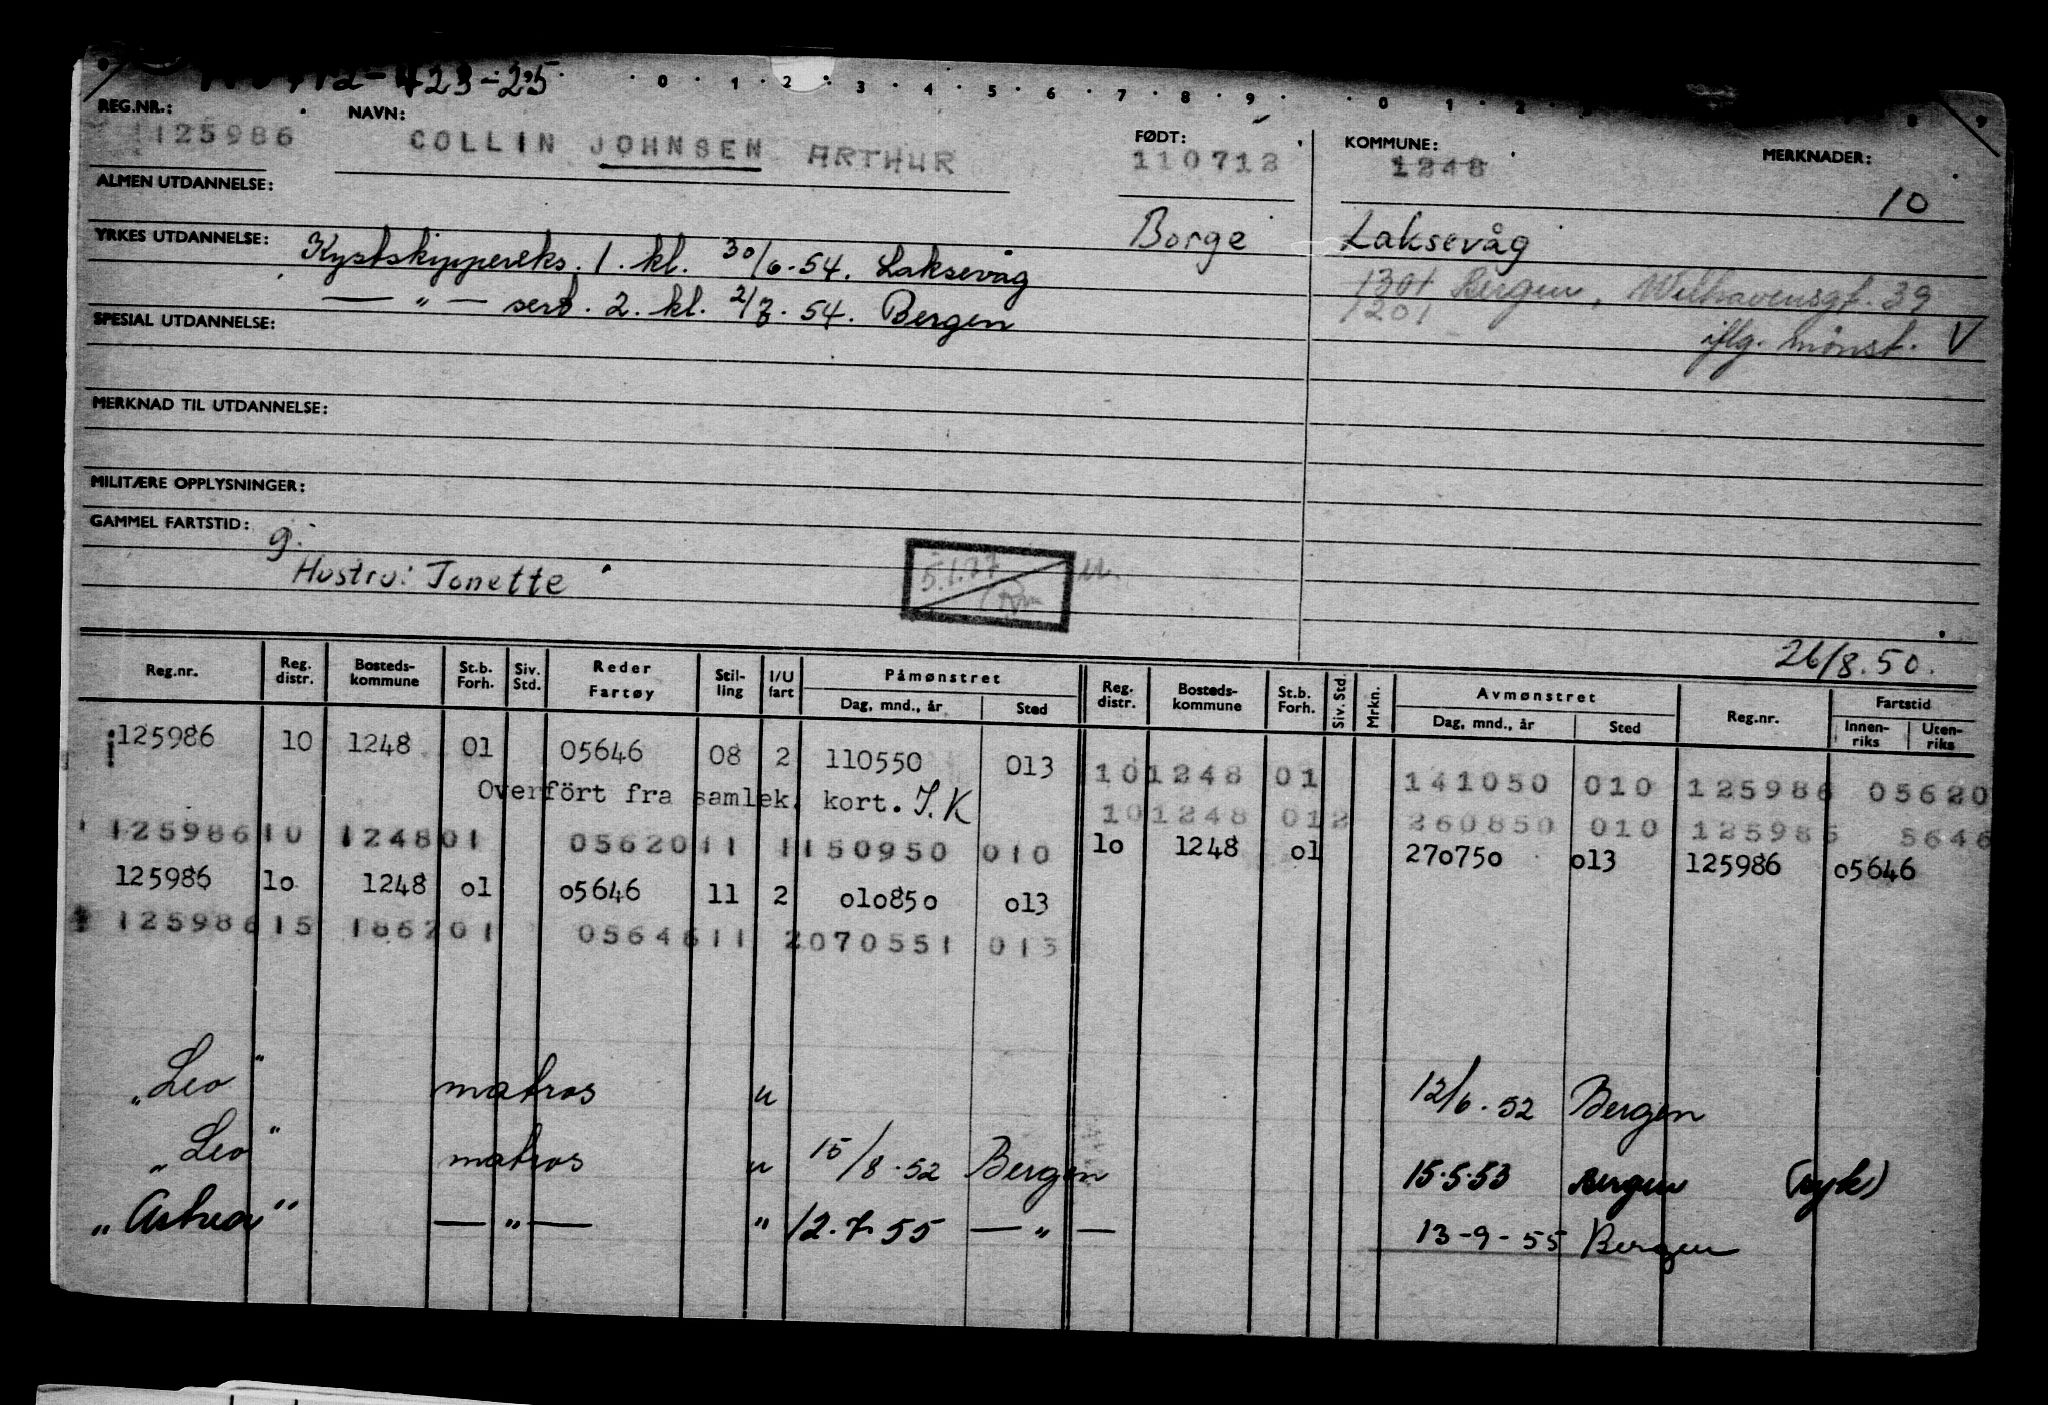 423-25
0 1 2 3 4 5 6 7 8 9 0 1 2 8 9
REG.NR.: NAVN: FØDT: KOMMUNE: MERKNADER:
125986 COLLIN JOHNSEN ARTHUR 110712 1248
ALMEN UTDANNELSE: 10
YRKES UTDANNELSE: Kystskippereks. 1. kl. 30/6.54. Laksevåg Borge Laksevåg
— " — sert. 2. kl. 2/7.54. Bergen 1301 Bergen, Welhavensgt. 39
1201
SPESIAL UTDANNELSE: iflg. mønst. V
MERKNAD TIL UTDANNELSE:
MILITÆRE OPPLYSNINGER:
GAMMEL FARTSTID: g.
Hustru: Jonette 5.1.77
26/8.50.
Reg.nr. Reg. distr. Bosteds-kommune St.b. Forh. Siv. Std. Reder Fartøy Stil-ling I/U fart Påmønstret Dag, mnd., år Sted Reg. distr. Bosteds-kommune St.b. Forh. Siv. Std. Mrkn. Avmønstret Dag, mnd., år Sted Reg.nr. Fartstid Innen-riks Uten-riks
125986 10 1248 01 05646 08 2 110550 013 10 1248 01 141050 010 125986 05620
Overført fra samlek. kort. J.K 10 1248 012 260850 010 125986 5646
125986 10 1248 01 05620 11 1 150950 010 lo 1248 ol 270750 o13 125986 o5646
125986 lo 1248 ol o5646 11 2 olo85o o13
125986 15 186201 05646 11 2 070551 013
"Leo" matros u 12/6.52 Bergen
"Leo" matros u 15/8.52 Bergen 15.5.53 Bergen (syk)
"Astrea" — " — " 12.7.55 — " — 13-9-55 Bergen